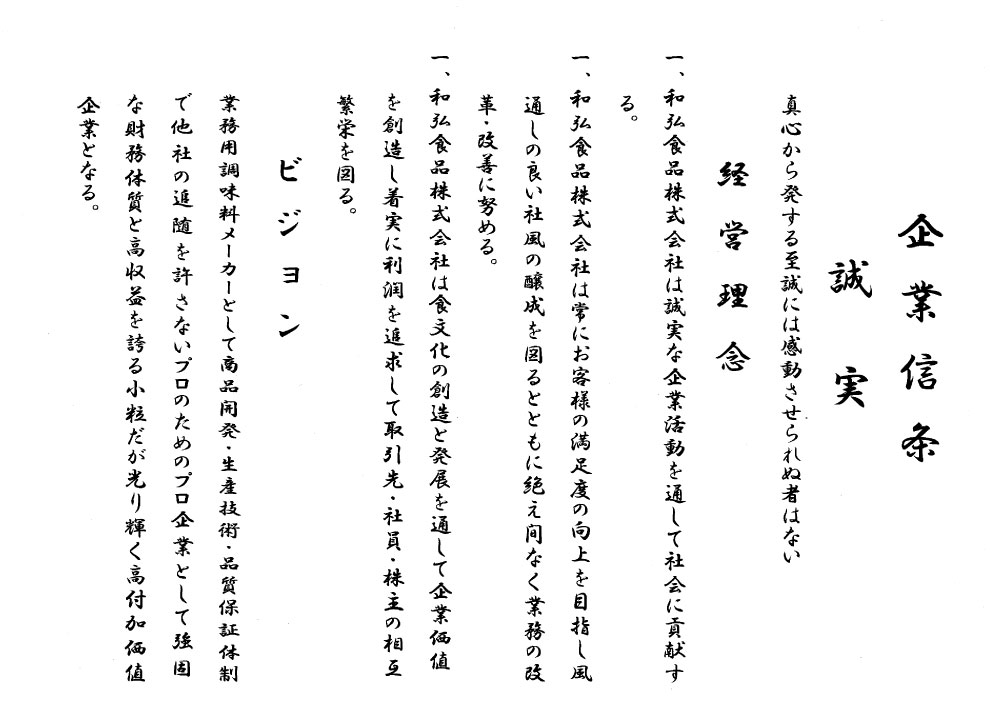 企業信条
誠実
真心から発する至誠には感動させられぬ者はない
経営理念
一、和弘食品株式会社は誠実な企業活動を通して社会に貢献す
る。
一、和弘食品株式会社は常にお客様の満足度の向上を目指し風
通しの良い社風の醸成を図るとともに絶え間なく業務の改
革・改善に努める。
一、和弘食品株式会社は食文化の創造と発展を通して企業価値
を創造し着実に利潤を追求して取引先・社員・株主の相互
繁栄を図る。
ビジョン
業務用調味料メーカーとして商品開発・生産技術・品質保証体制
で他社の追随を許さないプロのためのプロ企業として強固
な財務体質と高収益を誇る小粒だが光り輝く高付加価値
企業となる。